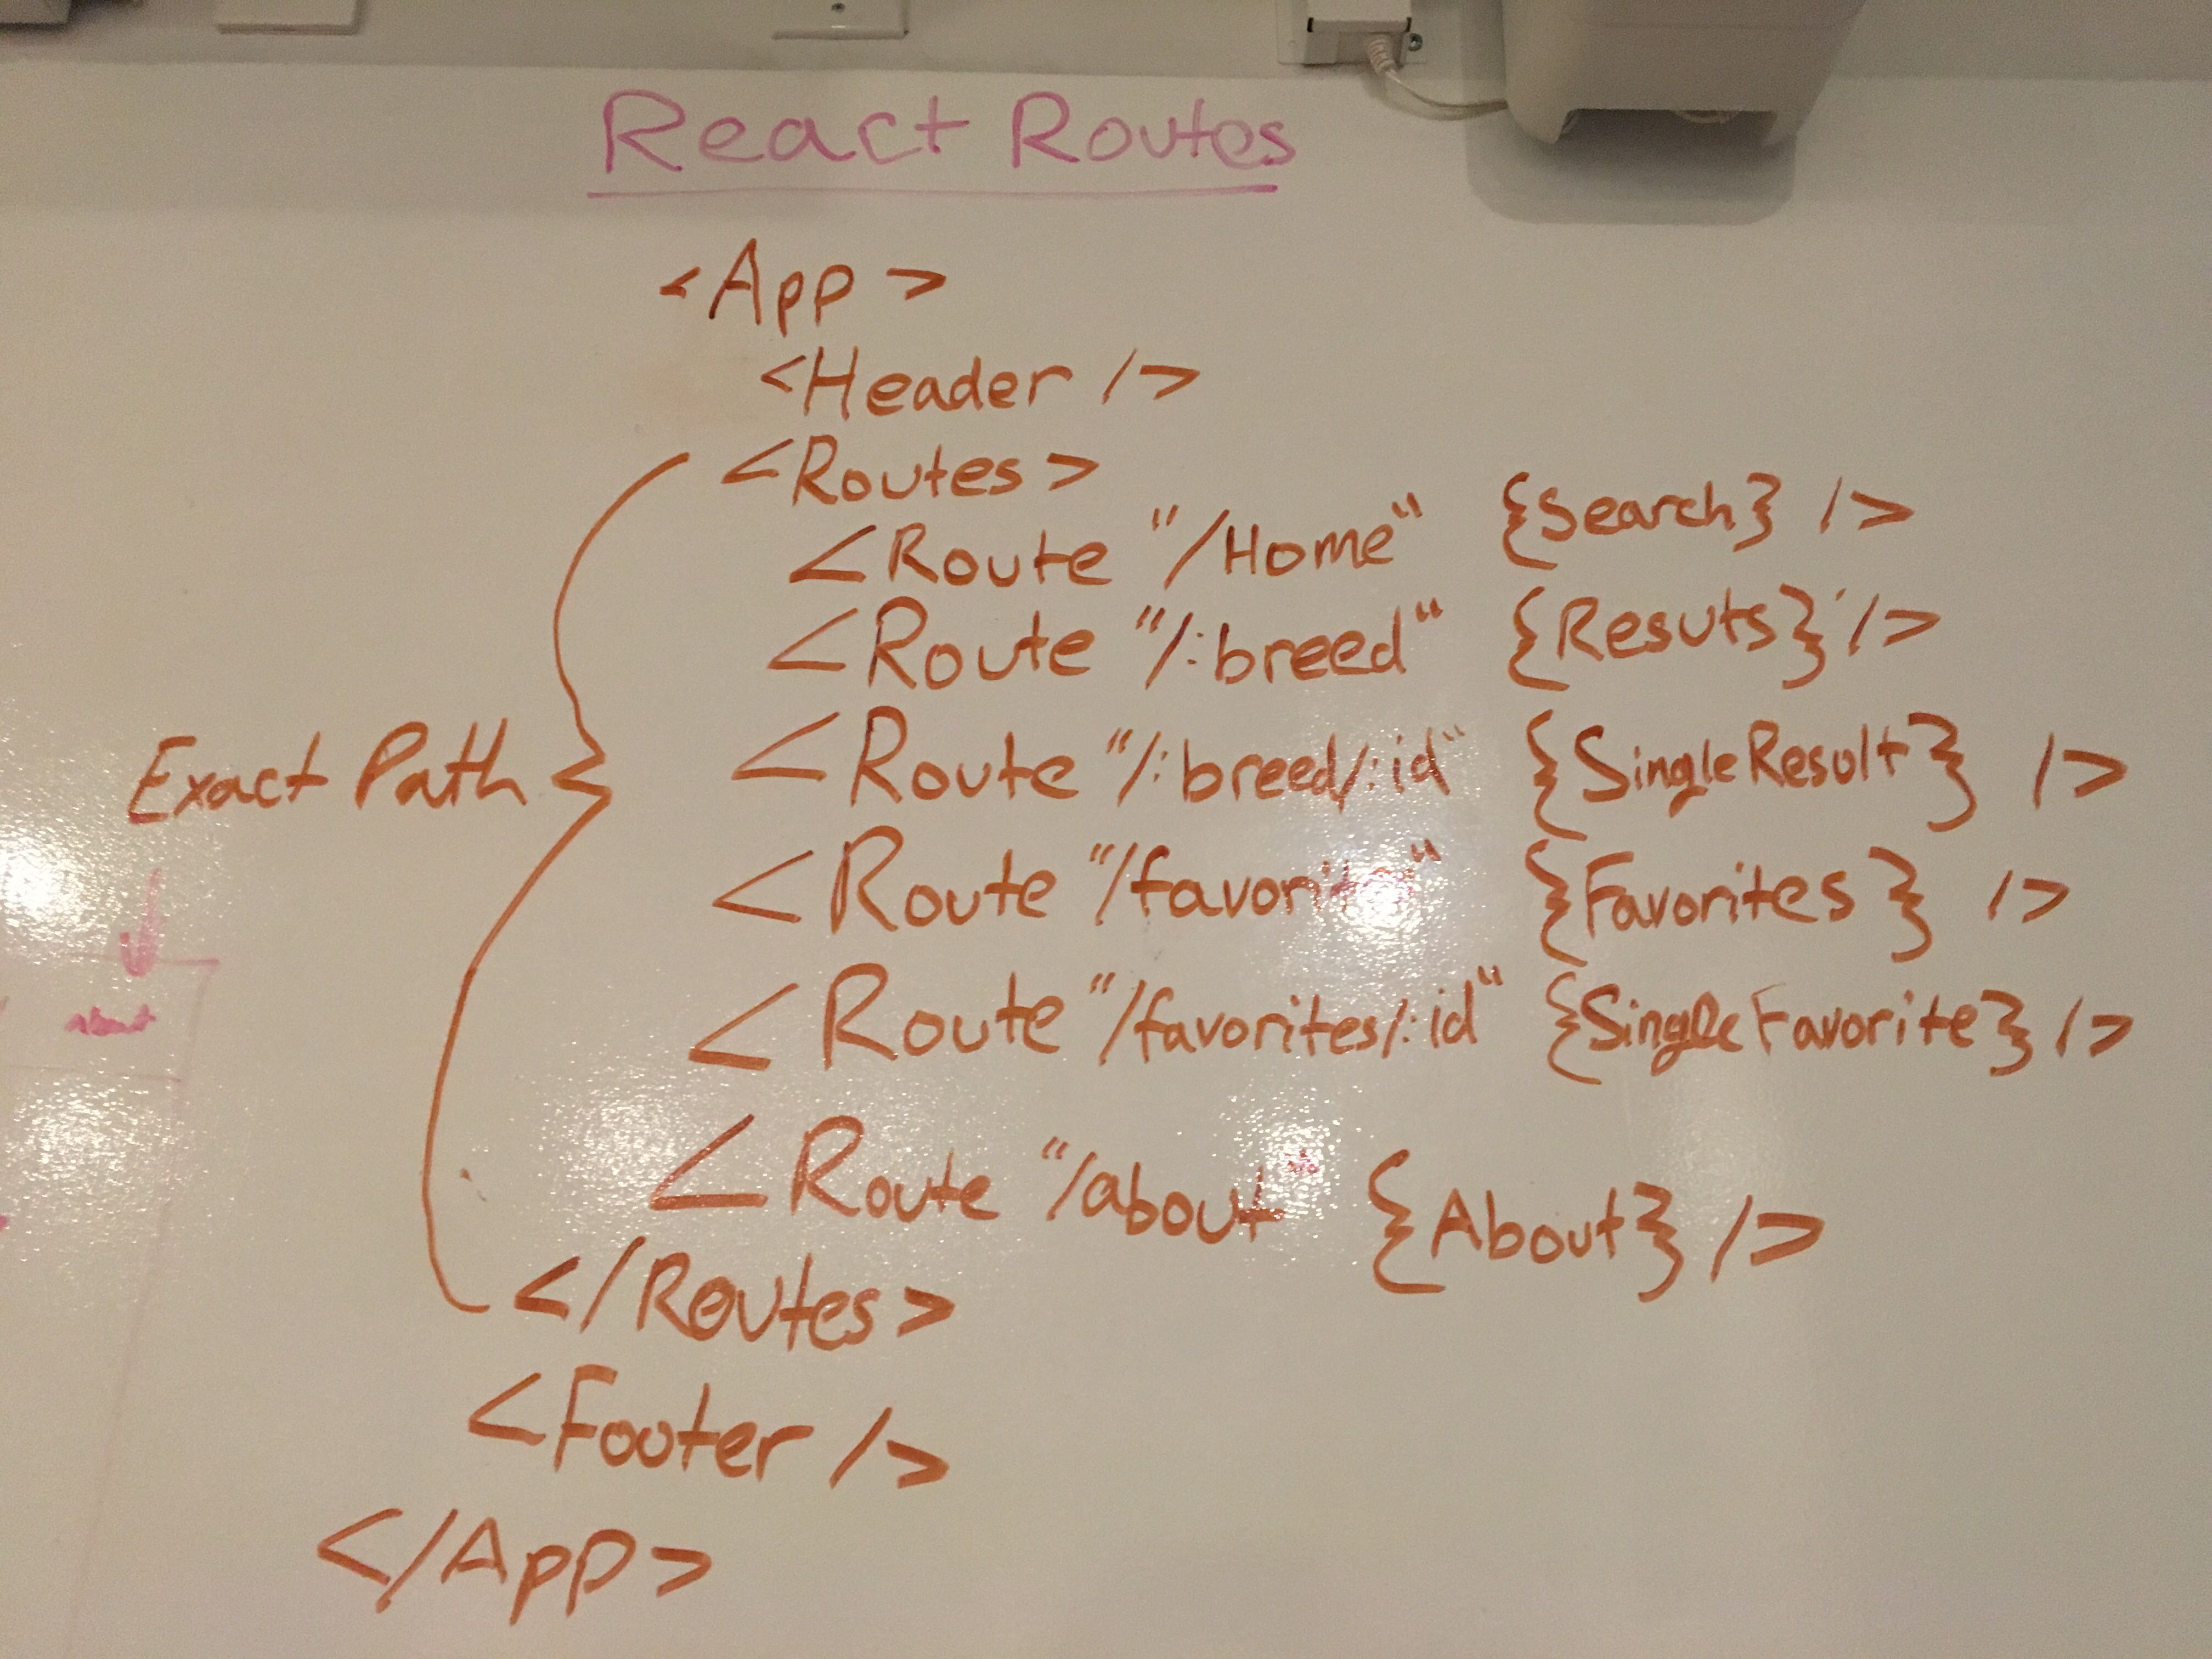 React Routes
<App>
<Header />
<Routes>
<Route "/Home" {Search} />
<Route "/:breed" {Resuts} />
Exact Path
<Route "/:breed/:id" {SingleResult} />
<Route "/favorite" {Favorites} />
about
<Route "/favorites/:id" {SingleFavorite} />
<Route "/about" {About} />
</Routes>
<Footer />
</App>